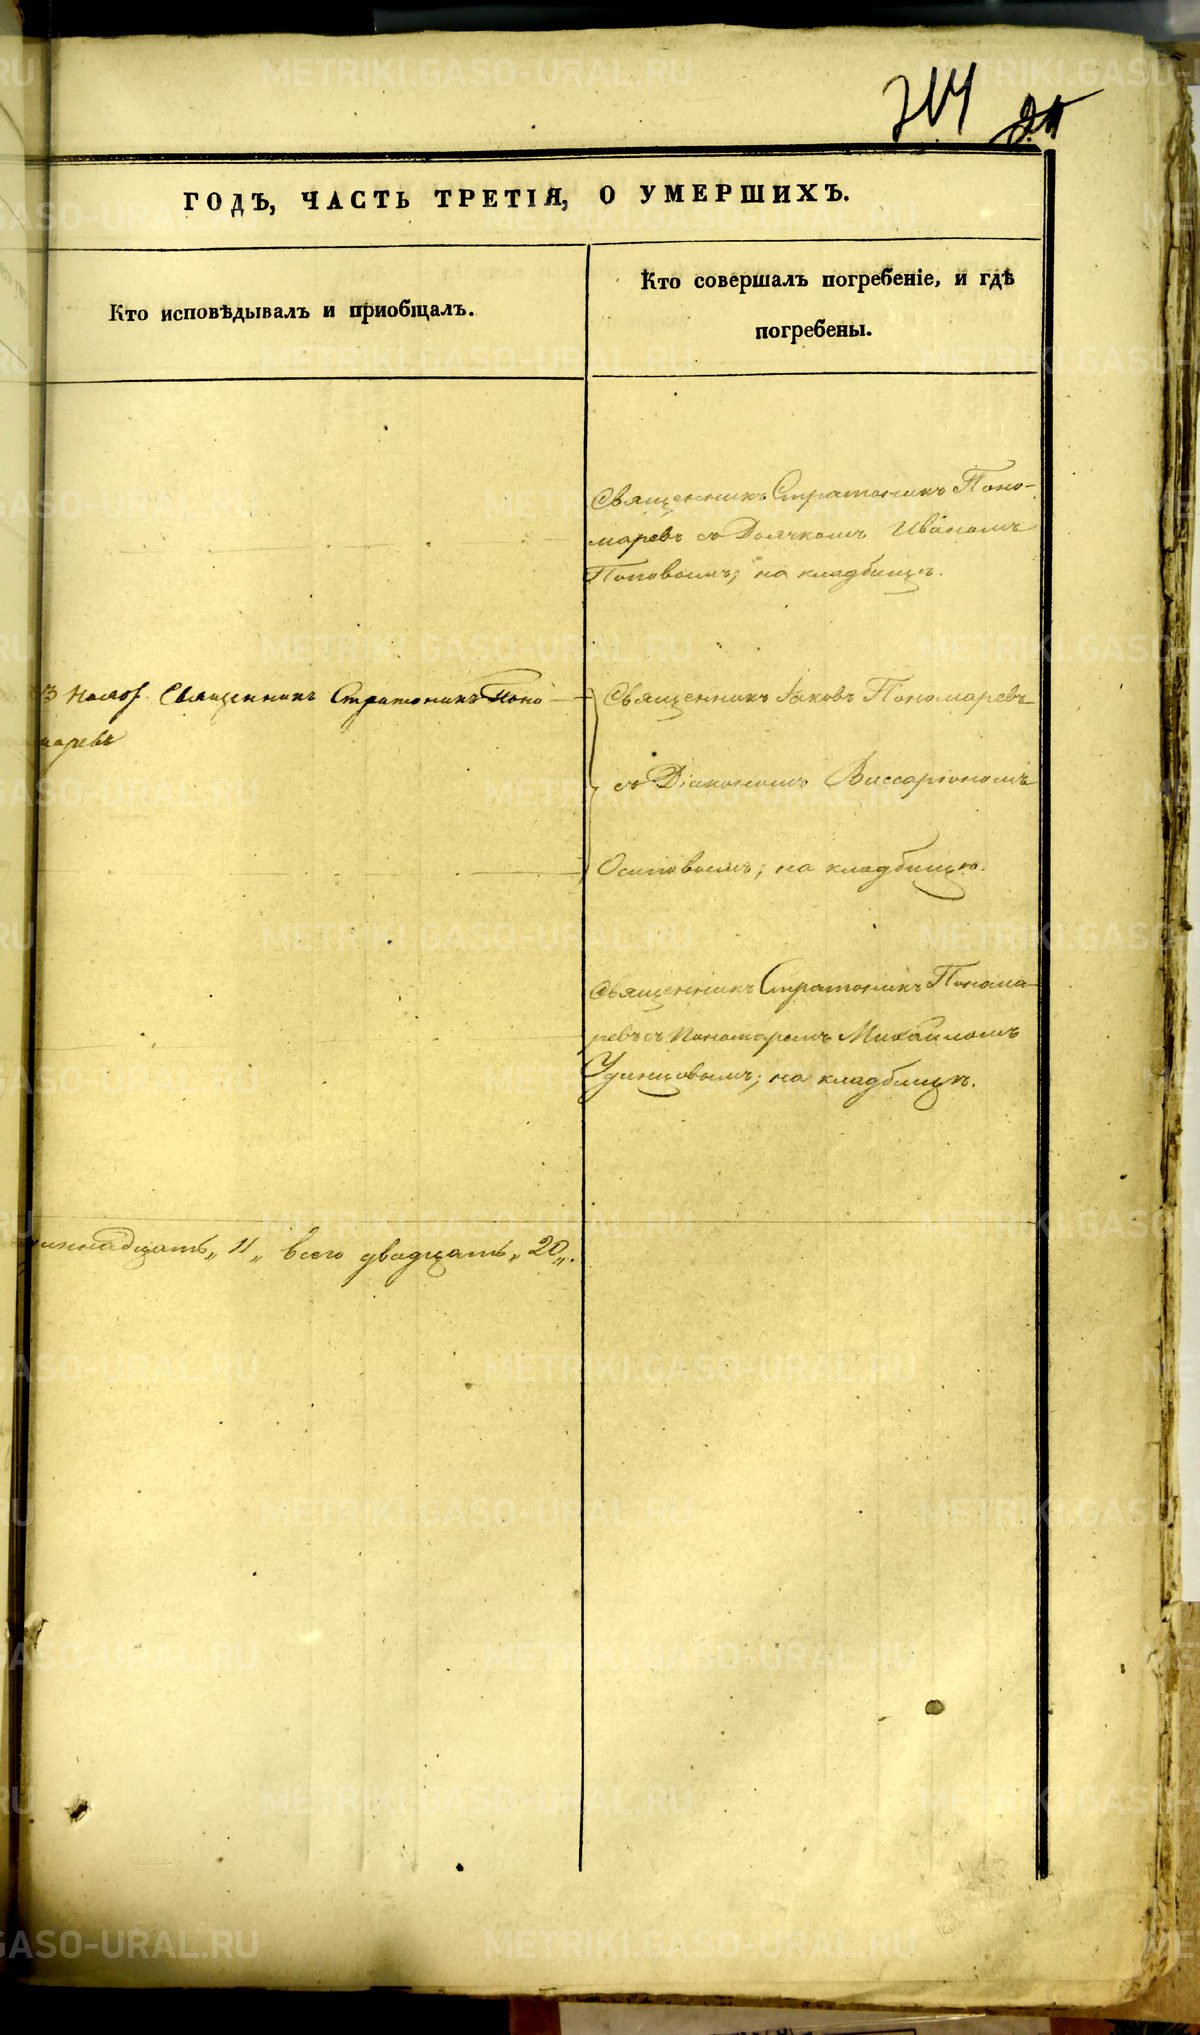 714
ГОДЪ, ЧАСТЬ ТРЕТІЯ, О УМЕРШИХЪ.
Кто исповѣдывалъ и приобщалъ.
Кто совершалъ погребеніе, и гдѣ
погребены.
Священникъ Стратоникъ Поно-
маревъ съ Дьячкомъ Иваномъ
Поповымъ; на кладбищѣ.
Священникъ Стратоникъ Поно
маревъ
Священникъ Іаковъ Пономаревъ
съ Діакономъ Виссаріономъ
Осиповымъ; на кладбищѣ.
Священникъ Стратоникъ Понома-
ревъ съ Пономаремъ Михаиломъ
Удинцовымъ; на кладбищѣ.
диннадцать „ 11 „ всего двадцать „ 20 „.
METRIKI.GASO-URAL.RU